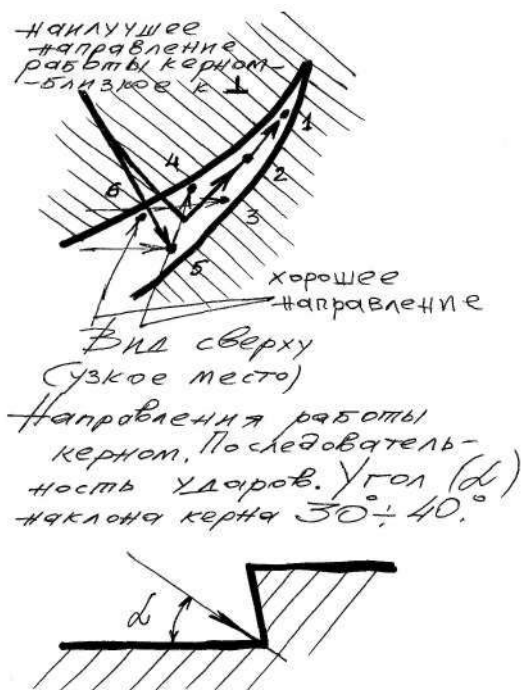 наилучшее
направление
работы керном-
-близкое к ⊥
1
2
3
4
5
6
хорошее
направление
Вид сверху
(узкое место)
Направления работы
керном. Последователь-
ность ударов. Угол (α)
наклона керна 30°÷40°.
α